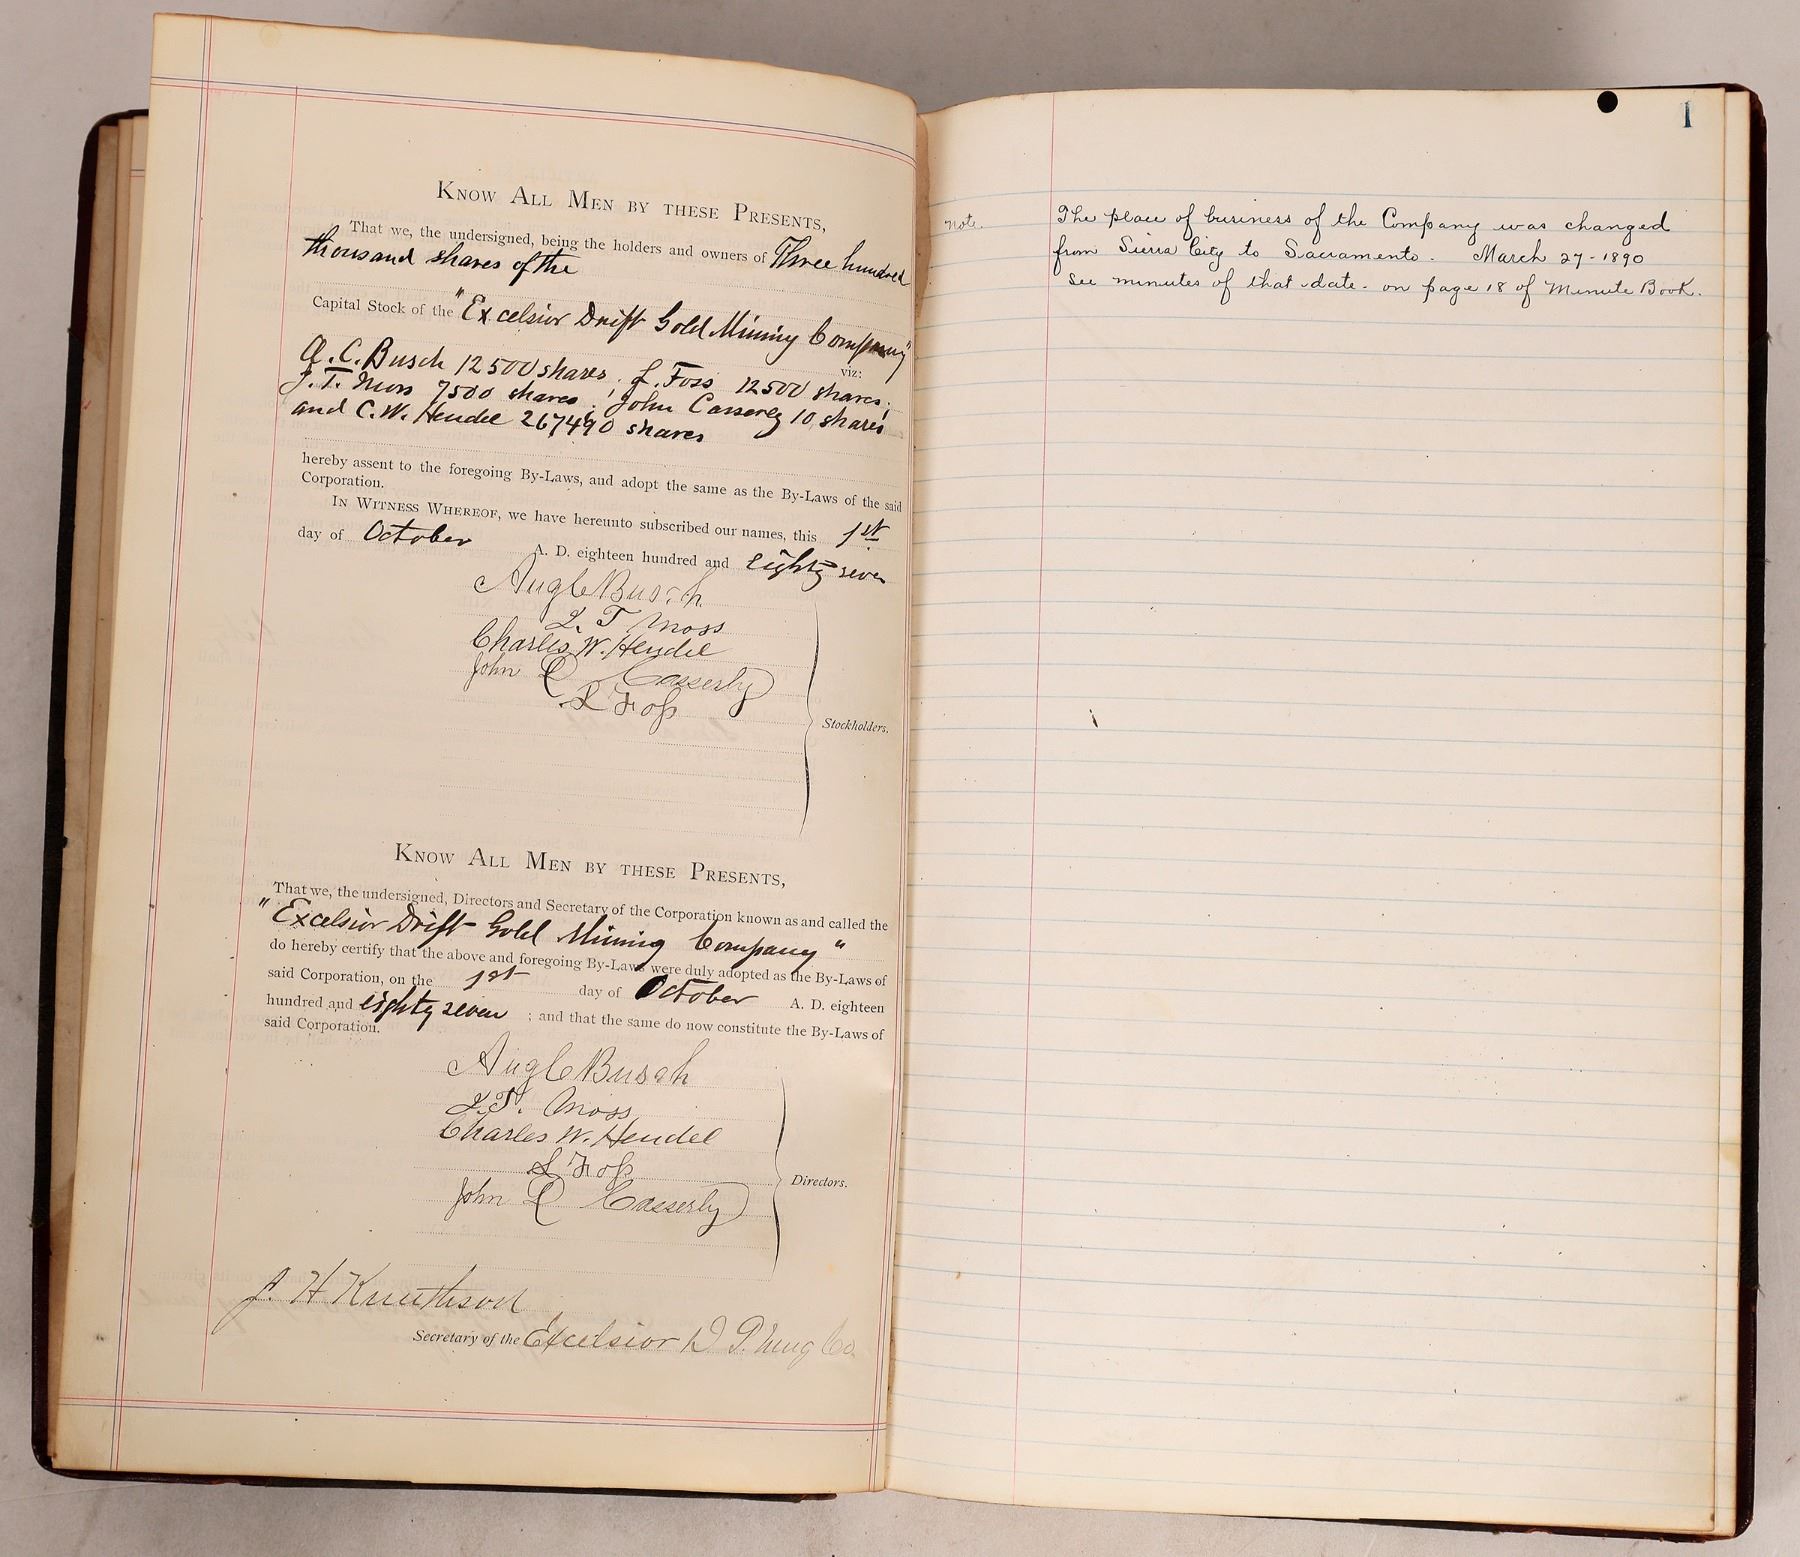 KNOW ALL MEN BY THESE PRESENTS,
That we, the undersigned, being the holders and owners of Three hundred
thousand shares of the
Capital Stock of the "Excelsior Drift Gold Mining Company"
viz:
A. C. Busch 12500 shares. L. Foss 12500 shares;
L. T. Moss 7500 shares; John Casserly 10 shares
and C. W. Hendel 267490 shares
hereby assent to the foregoing By-Laws, and adopt the same as the By-Laws of the said
Corporation.
IN WITNESS WHEREOF, we have hereunto subscribed our names, this 1st
day of October A. D. eighteen hundred and eighty seven
Aug C Busch
L. T Moss
Charles W. Hendel
John D Casserly
L Foss
Stockholders.
KNOW ALL MEN BY THESE PRESENTS,
That we, the undersigned, Directors and Secretary of the Corporation known as and called the
"Excelsior Drift Gold Mining Company"
do hereby certify that the above and foregoing By-Laws were duly adopted as the By-Laws of
said Corporation, on the 1st day of October A. D. eighteen
hundred and eighty seven ; and that the same do now constitute the By-Laws of
said Corporation.
Aug C Busch
L. T. Moss
Charles W. Hendel
L Foss
John D Casserly
Directors.
J. H Knuthson
Secretary of the Excelsior D G. Mng Co.
1
note. The place of business of the Company was changed
from Sierra City to Sacramento. March 27-1890
See minutes of that date. on page 18 of Minute Book.